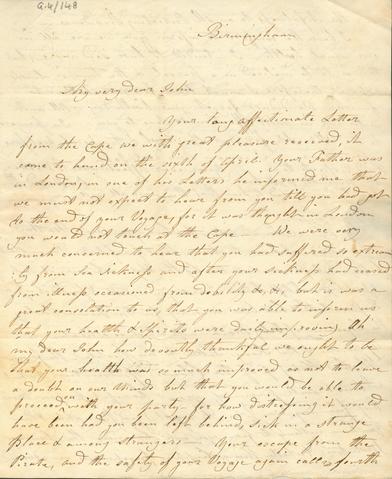 G.4/148
Birmingham
My very dear John
Your long affectionate Letter
from the Cape we with great pleasure received, it
came to hand on the sixth of April. Your Father was
in London, in one of his Letters he informed me that
we must not expect to hear from you till you had got
to the end of your Voyage, for it was thought in London
you would not touch at the Cape — We were very
much concerned to hear that you had suffered so extrem
ly from Sea Sickness and after your Sickness had ceased
from illness occasioned from debility &c &c, but it was a
great consolation to us, that you was able to inform us
that your health & Spirits were daily improving, Oh!
my dear John how devoutly thankful we ought to be
that your health was so much improved as not to leave
a doubt on our Minds but that you would be able to
proceed with your party — for how distressing it would
have been had you been left behind, sick in a strange
Place & among strangers — Your escape from the
Pirate, and the safety of your Voyage again calls forth